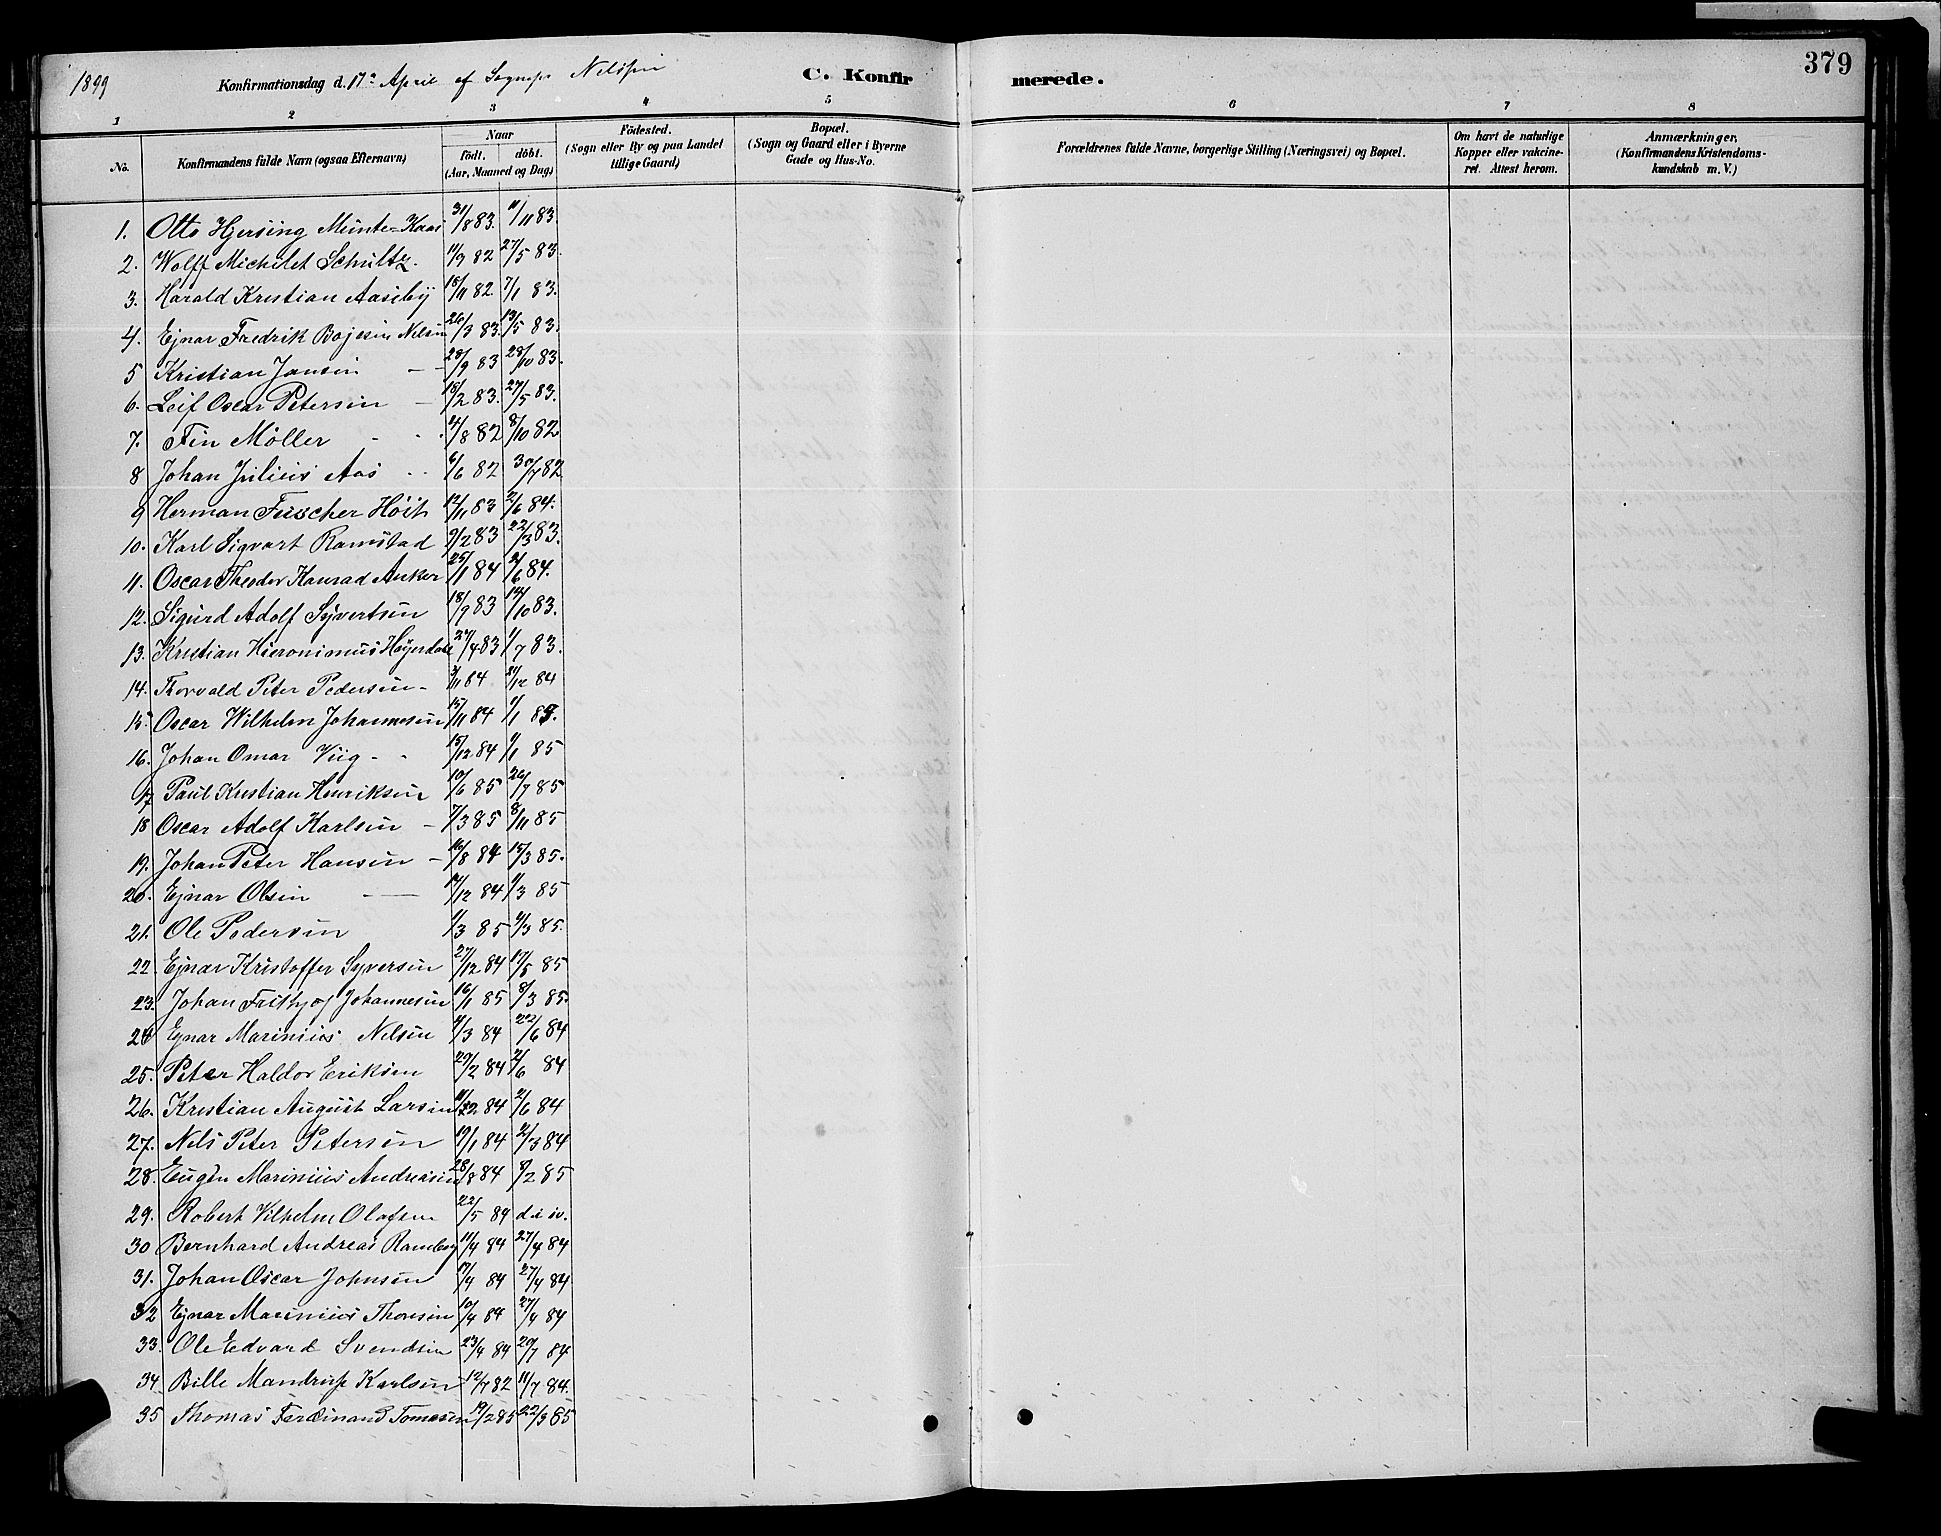 379
1899 Konfirmationsdag d. 17de April af Sognepr Nilssen C. Konfirmerede.
1 2 3 4 5 6 7 8
No. Konfirmandens fulde Navn (ogsaa Efternavn) Naar födt. döbt. (Aar, Maaned og Dag) Födested. (Sogn eller By og paa Landet tillige Gaard) Bopæl. (Sogn og Gaard eller i Byerne Gade og Hus-No. Forældrenes fulde Navne, borgerlige Stilling (Næringsvei) og Bopæl. Om havt de naturlige Kopper eller vakcineret. Attest herom. Anmærkninger. (Konfirmandens Kristendomskundskab m. V.)
1. Otto Hjersing Munte-Kaas 31/8 83. 11/11 83.
2. Wolff Michelet Schultz. 11/9 82 27/5 83.
3. Harald Kristian Aaseby 18/11 82. 7/1 83.
4. Ejnar Fredrik Bojesen Nelsen 26/3 83. 13/5 83.
5 Kristian Jansen 28/9 83 28/10 83.
6. Leif Oscar Petersen 18/2 83. 27/5 83.
7. Fin Möller 4/8 82 8/10 82
8 Johan Julius Aas 6/6 82 30/7 82
9 Herman Fischer Höit 12/11 83 2/6 84.
10. Karl Sigvart Ramstad 9/2 83 22/3 83.
11. Oscar Theodor Konrad Anker 25/1 84 2/6 84.
12. Sigurd Adolf Syvertsen 18/9 83 14/10 83.
13. Kristian Hieronimus Höyerdal 27/4 83 1/7 83.
14. Thorvald Peter Pedersen 3/11 84 21/12 84
15. Oscar Wilhelm Johannesen 15/11 84 1/1 85.
16. Johan Omar Viig 15/12 84 1/1 85
17 Paul Kristian Henriksen 10/6 85 26/7 85
18 Oscar Adolf Karlsen 7/3 85 8/11 85
19. Johan Peter Hansen 16/8 84 15/3 85.
20. Ejnar Olsen 14/12 84 1/3 85
21. Ole Pedersen 1/3 85 4/3 85.
22. Ejnar Kristoffer Syversen 27/12 84 17/5 85
23. Johan Frithjof Johannesen 16/1 85 8/3 85.
24 Ejnar Marinius Nelsen 4/3 84 22/6 84
25. Peter Haldor Eriksen 29/2 84 2/6 84
26. Kristian August Larsen 11/2 84 2/6 84
27. Nels Peter Petersen 19/1 84 2/3 84
28. Eugen Marinius Andreasen 28/8 84 8/2 85
29. Robert Vilhelm Olafsen 22/5 84
30 Bernhard Andreas Ramberg 11/4 84 27/4 84
31. Johan Oscar Johnsen 17/4 84 27/4 84
32 Ejnar Marinius Thoresen 10/4 84 27/4 84
33. Ole Edvard Svendsen 23/4 84 20/7 84
34. Bille Mandrup Karlsen 12/7 82 11/7 84.
35 Thomas Ferdinand Tomesen 19/2 85 22/3 85